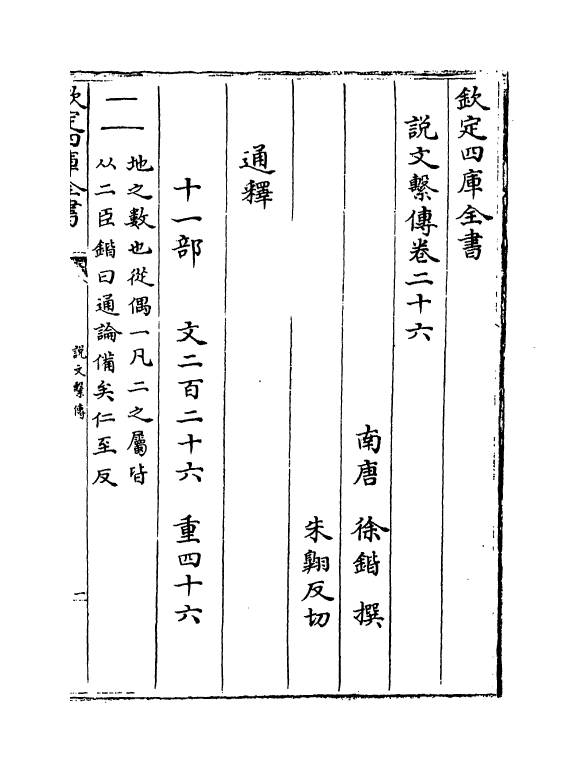 欽定四庫全書
說文繫傳卷二十六
南唐 徐鍇 撰
朱翺反切
通釋
十一部 文二百二十六 重四十六
二
地之數也從偶一凡二之屬皆
从二臣鍇曰通論備矣仁至反
欽定四庫全書
說文繫傳
一